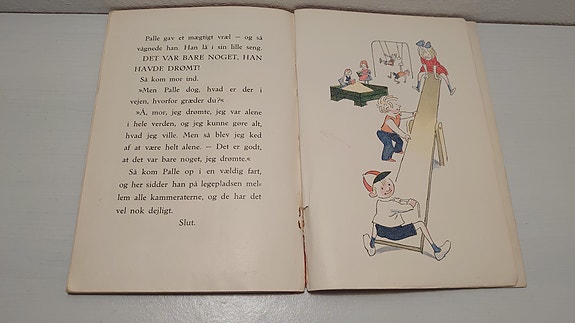 Palle gav et mægtigt vræl — og så
vågnede han. Han lå i sin lille seng.
DET VAR BARE NOGET, HAN
HAVDE DRØMT!
Så kom mor ind.
»Men Palle dog, hvad er der i
vejen, hvorfor græder du?«
»Å, mor, jeg drømte, jeg var alene
i hele verden, og jeg kunne gøre alt,
hvad jeg ville. Men så blev jeg ked
af at være helt alene. — Det er godt,
at det var bare noget, jeg drømte.«
Så kom Palle op i en vældig fart,
og her sidder han på legepladsen mel-
lem alle kammeraterne, og de har det
vel nok dejligt.
Slut.